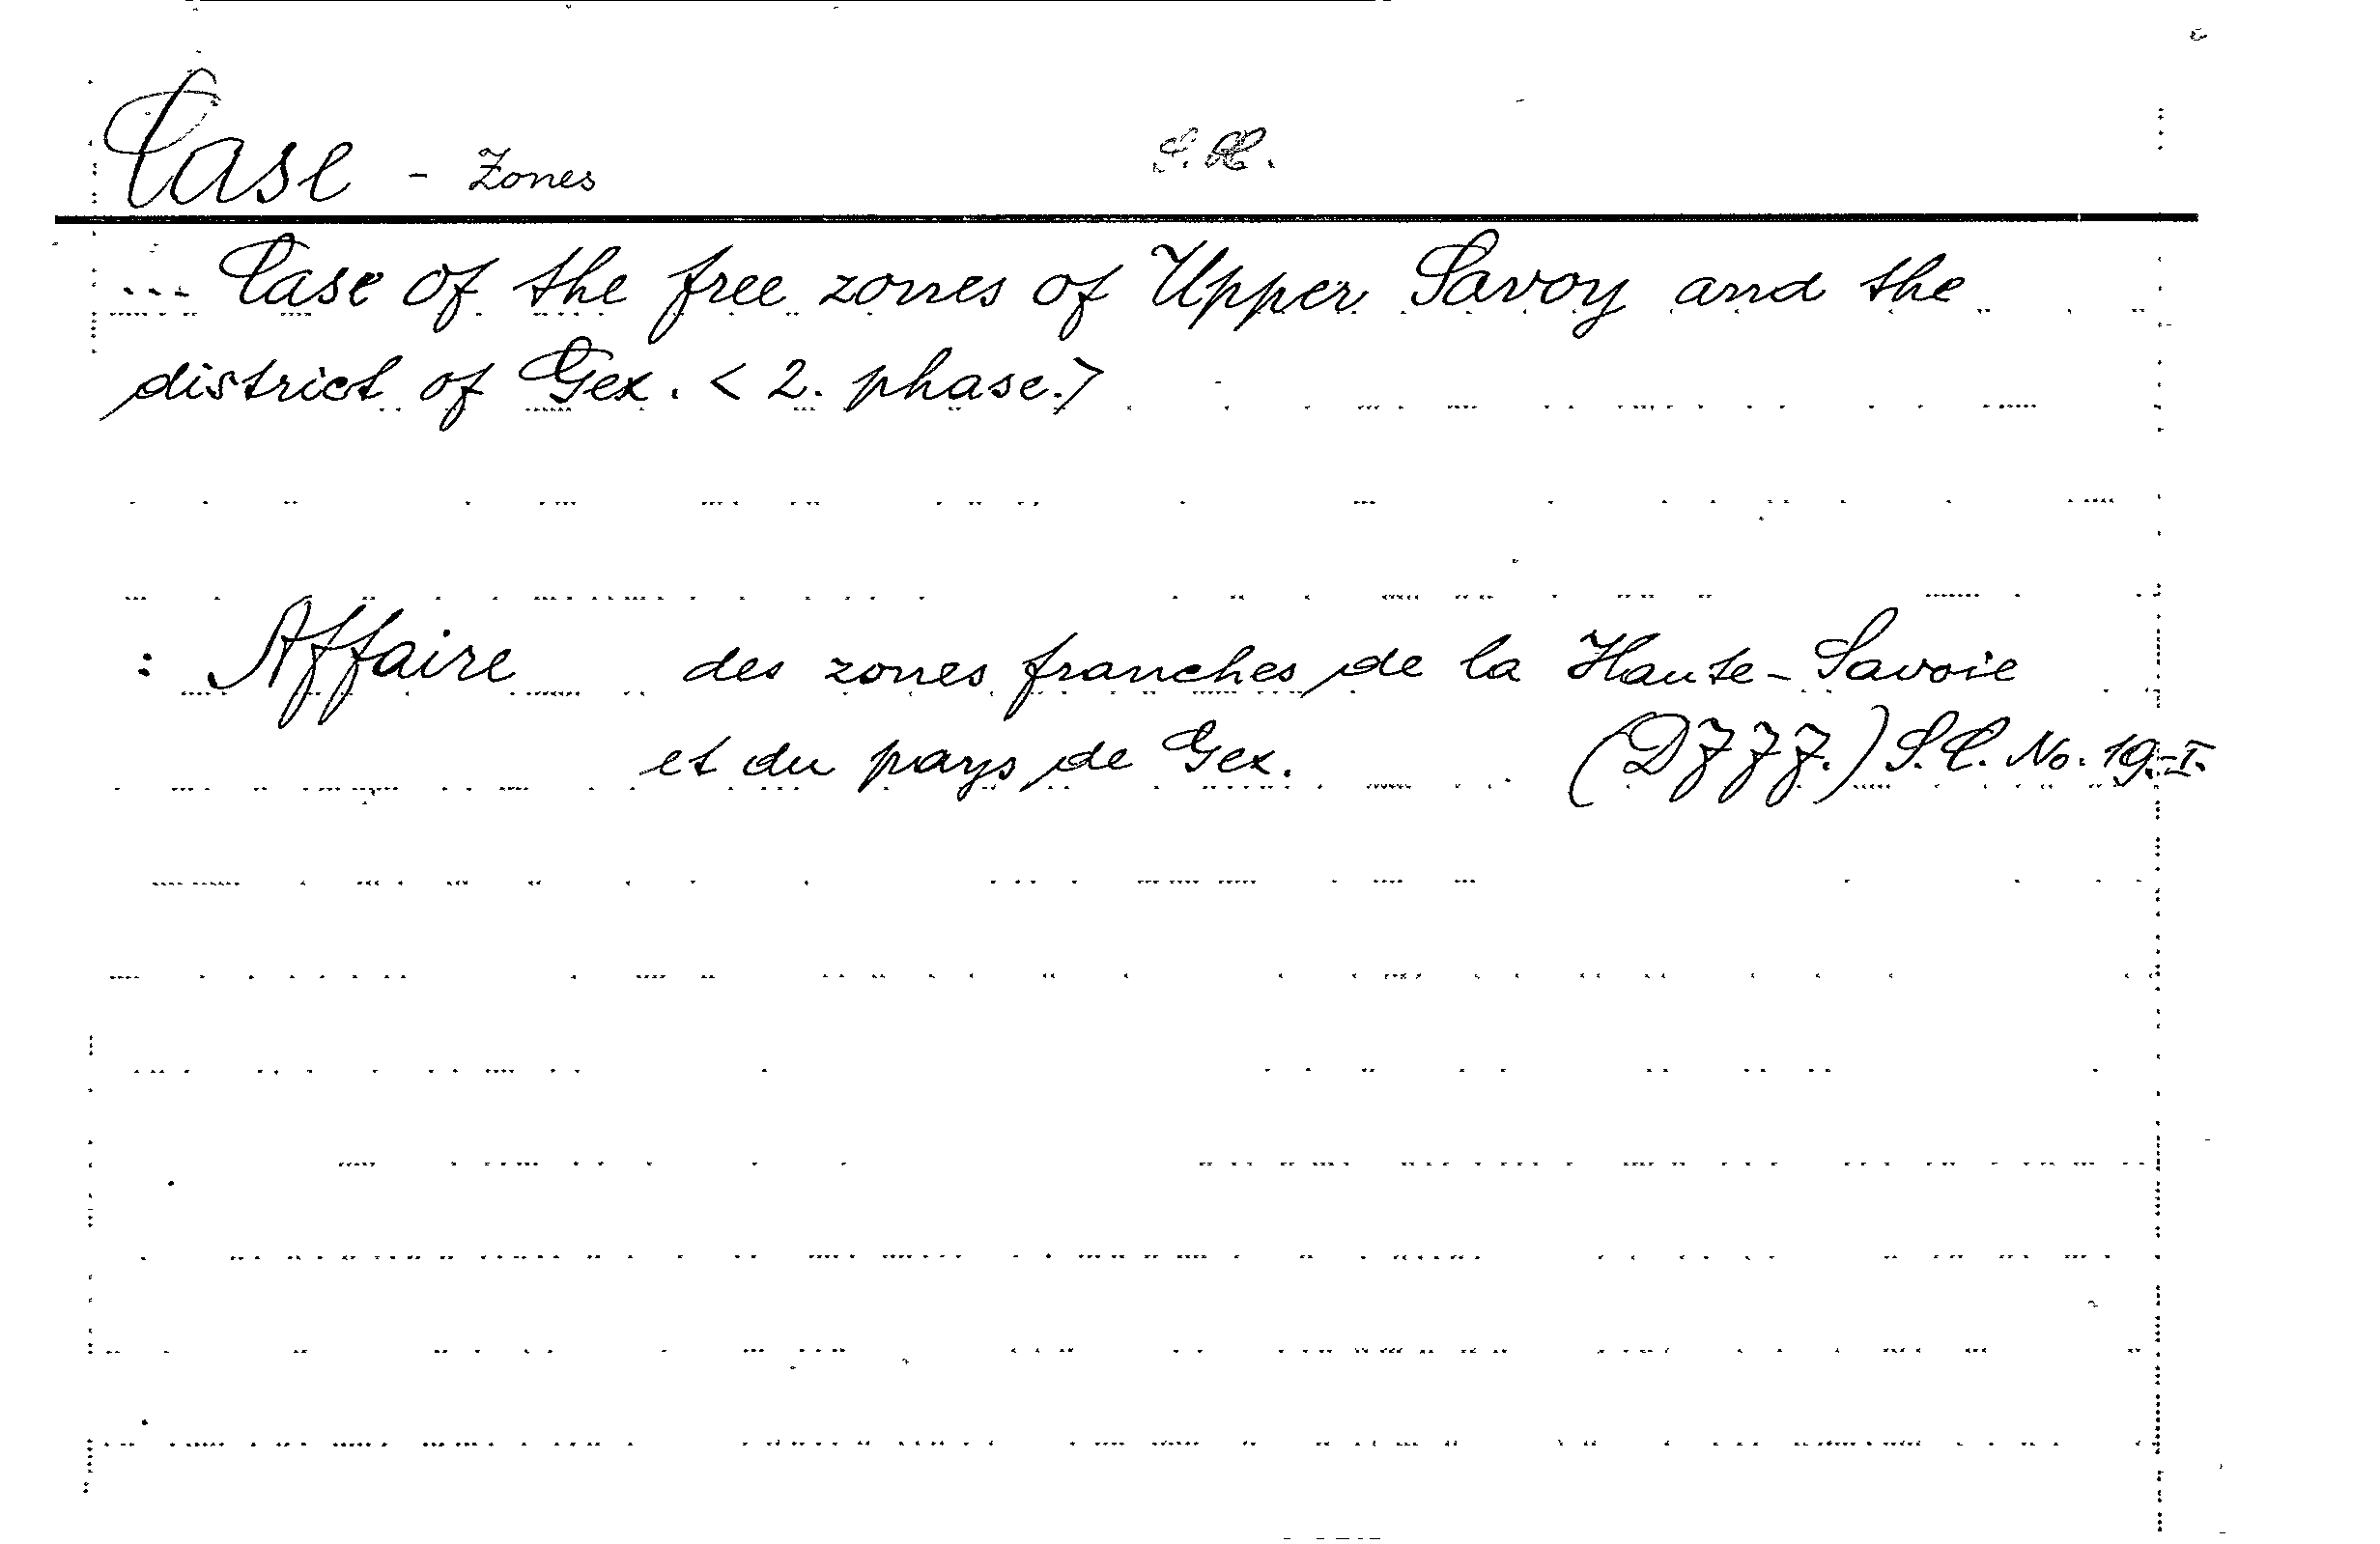 Case - Zones
--- Case of the free zones of Upper Savoy and the
district of Gex. < 2. phase.>
: Affaire des zones franches de la Haute-Savoie
et du pays de Gex. (DJJJ.) S.C. No. 19.-I.